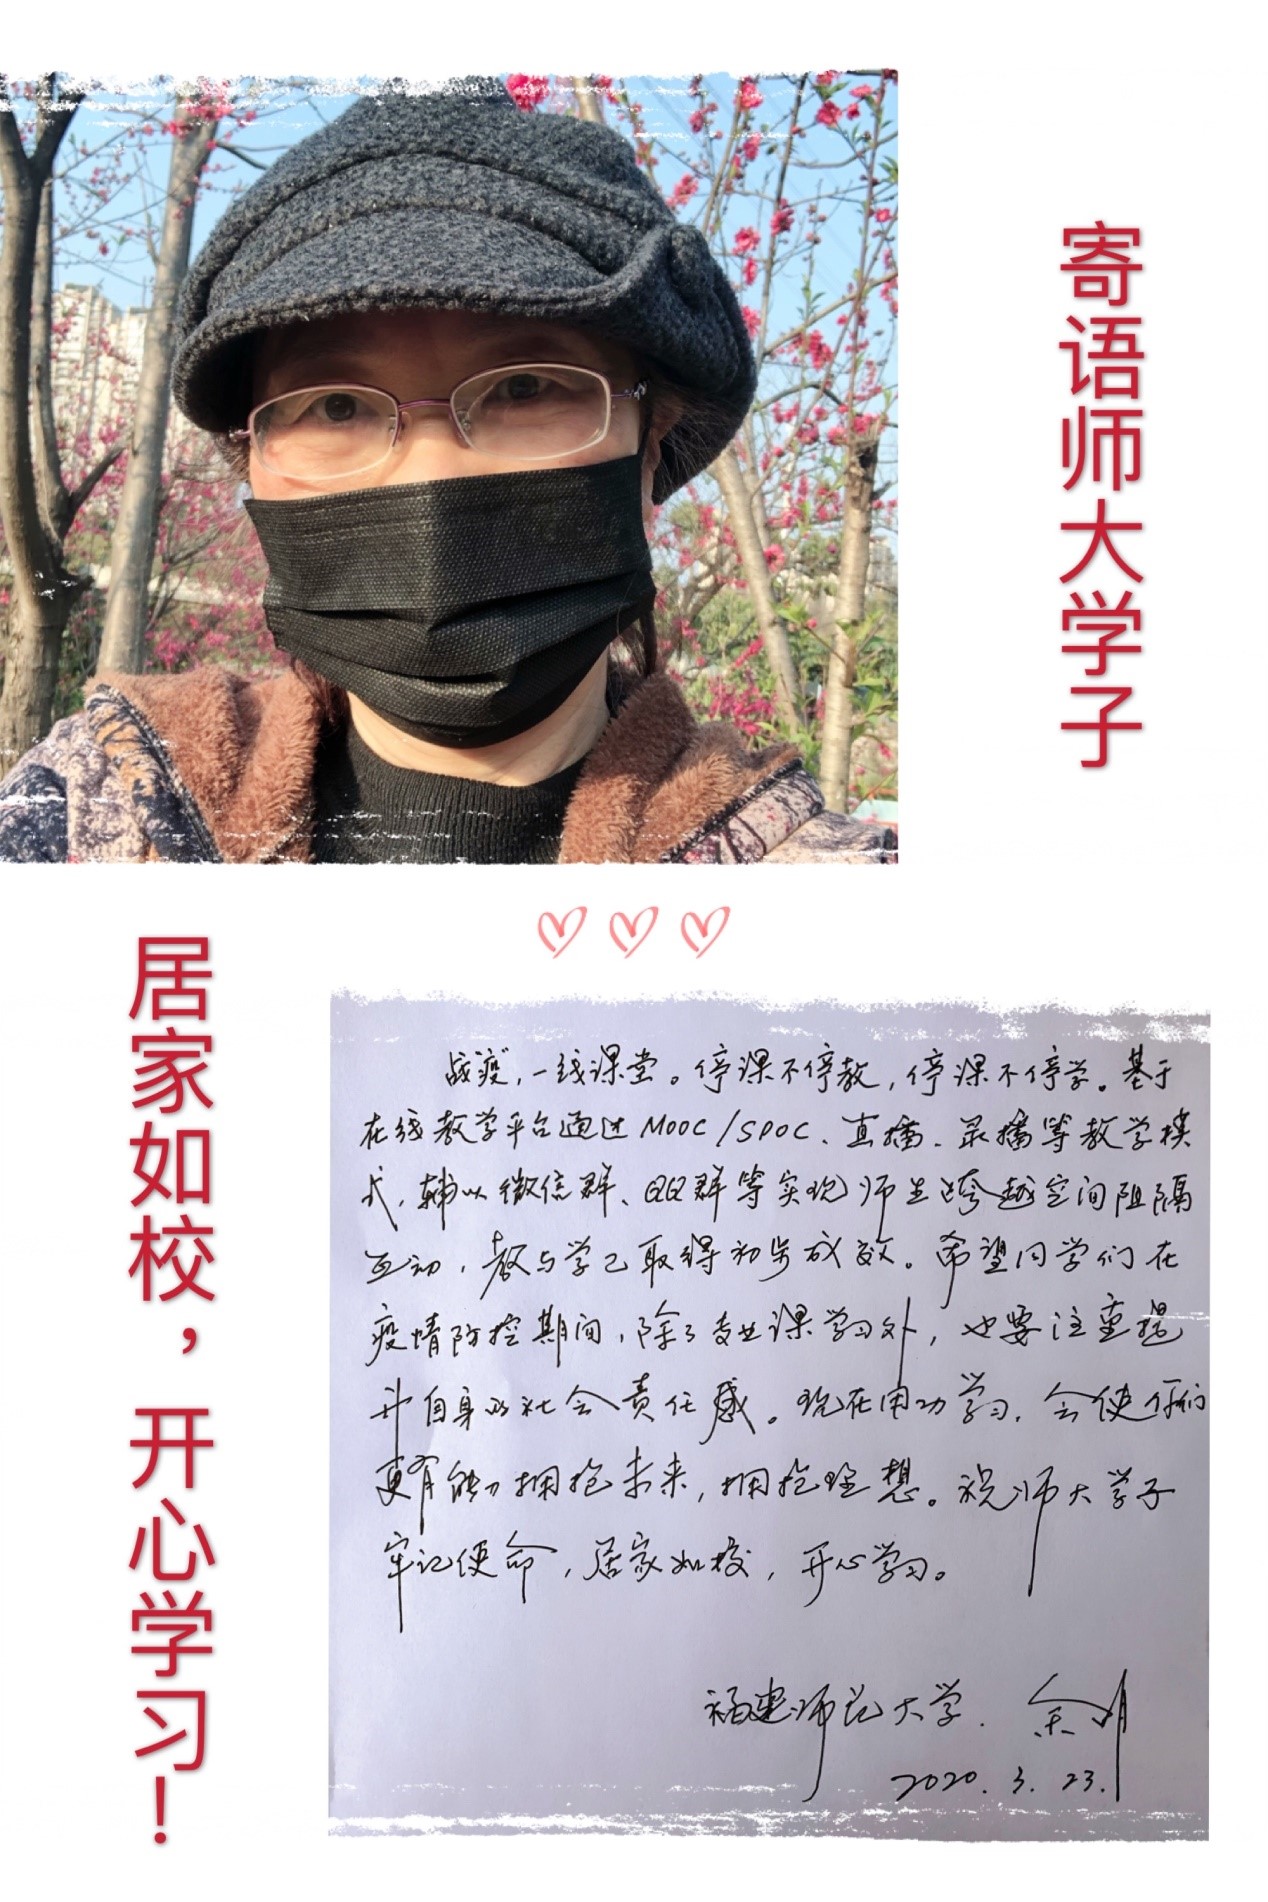 寄语师大学子
居家如校，开心学习！
战"疫"，一线课堂。停课不停教，停课不停学。基于
在线教学平台通过MOOC/SPOC、直播、录播等教学模
式，辅以微信群、QQ群等实现师生跨越空间阻隔
互动，教与学已取得初步成效。希望同学们在
疫情防控期间，除了专业课学习外，也要注重提
升自身的社会责任感。现在用功学习，会使你们
更有能力拥抱未来，拥抱理想。祝师大学子
牢记使命，居家如校，开心学习。
福建师范大学 余明
2020.3.23.